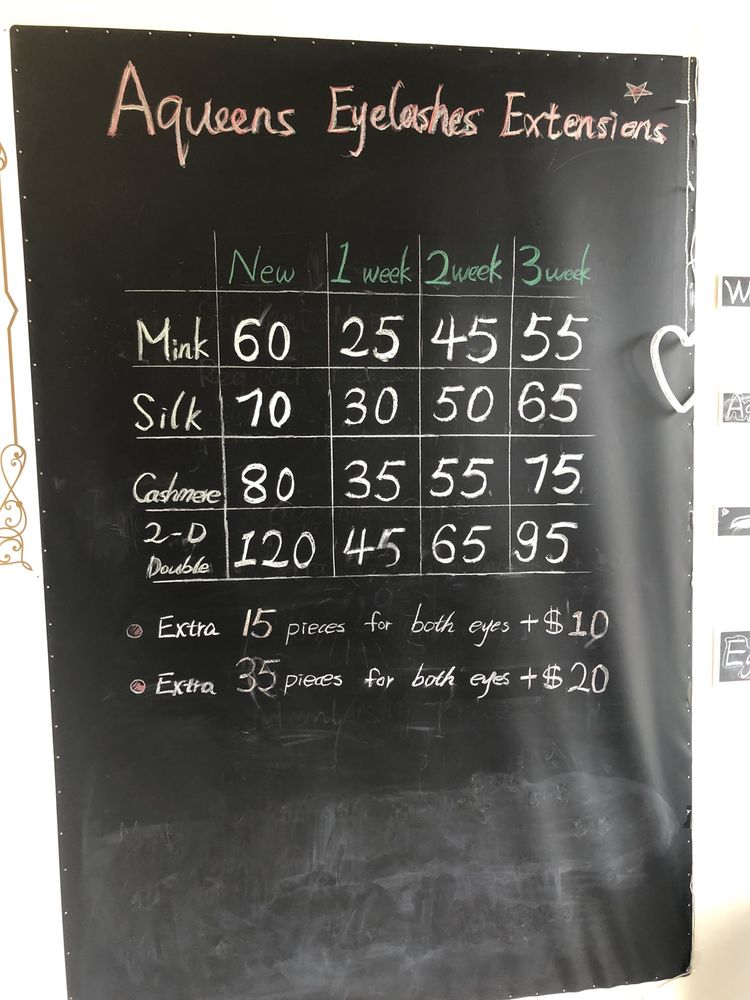 Aqueens Eyelashes Extensions
New 1 week 2 week 3 week
Mink 60 25 45 55
Silk 70 30 50 65
Cashmere 80 35 55 75
2-D Double 120 45 65 95
Extra 15 pieces for both eyes + $10
Extra 35 pieces for both eyes + $20